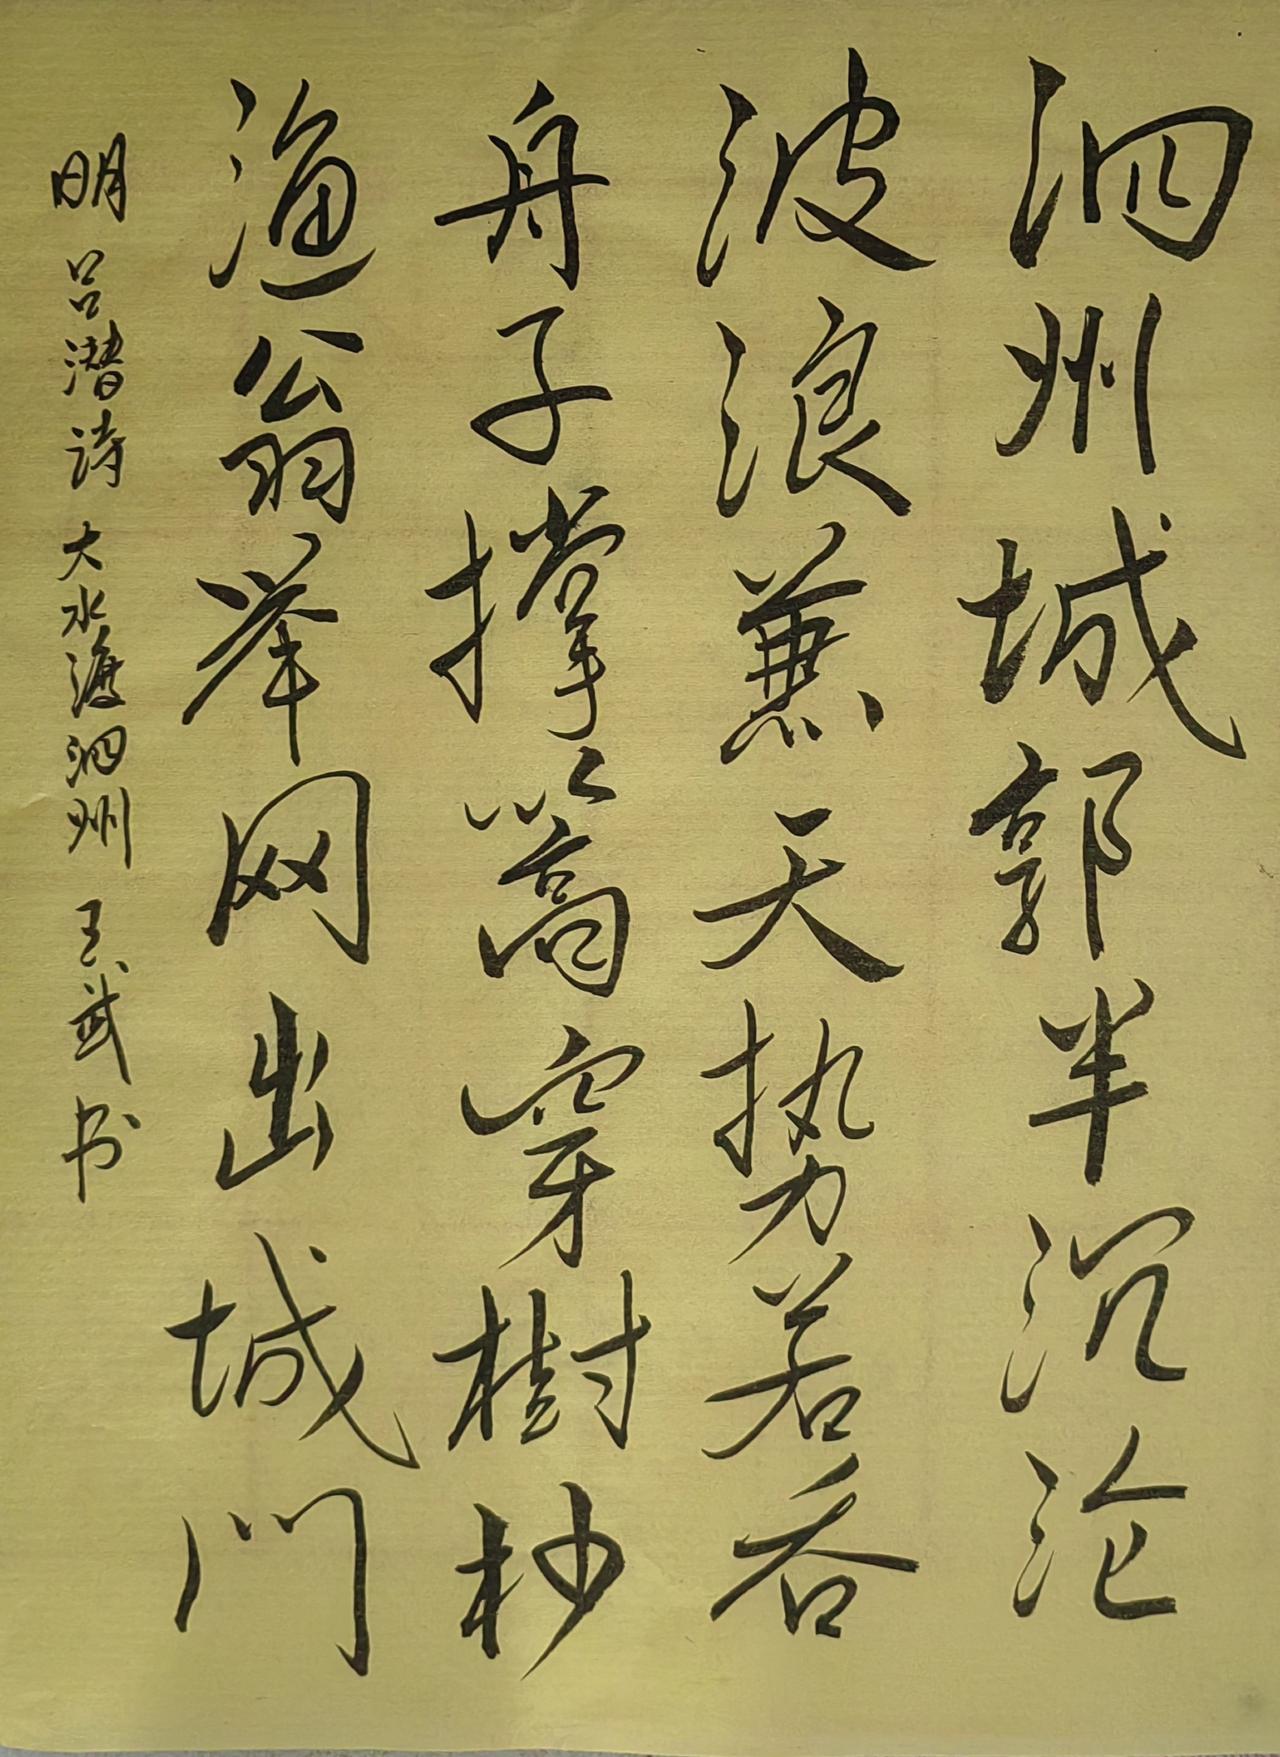 泗州城郭半沉沦
波浪兼天势若吞
舟子撑篙穿樹杪
渔翁举网出城门
明 吕潜诗 大水渡泗州 王武书